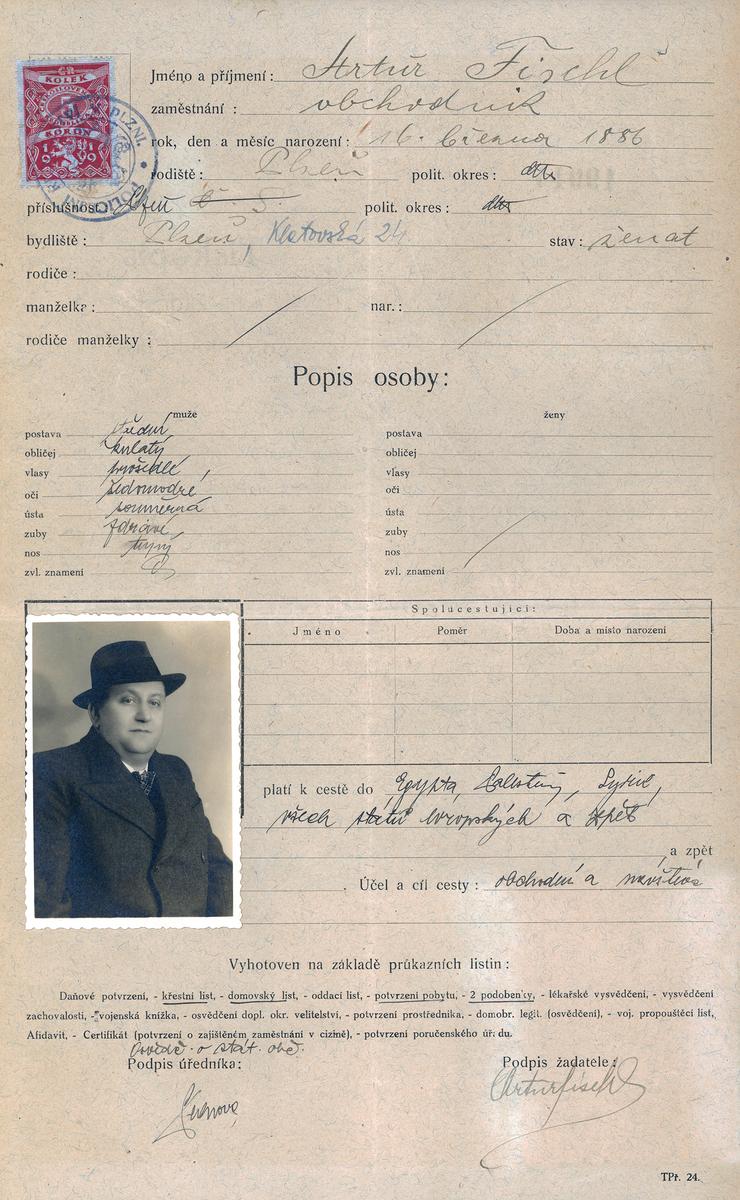 KOLEK
5
KORUN
1919
Jméno a příjmení: Artur Fischl
zaměstnání : obchodník
rok, den a měsíc narození: 16. března 1886
rodiště: Plzeň polit. okres: dtto
příslušnost Plzeň Č. S. polit. okres: dtto
bydliště : Plzeň, Klatovská 24 stav: ženat
rodiče :
manželka: nar.:
rodiče manželky :
Popis osoby:
muže ženy
postava střední postava
obličej kulatý obličej
vlasy prošedlé vlasy
oči šedomodré oči
ústa souměrná ústa
zuby zdravé zuby
nos nos
zvl. znamení zvl. znamení
Spolucestující:
Jméno Poměr Doba a místo narození
platí k cestě do Egypta, Palestiny, Syrie,
všech států evropských a zpět
a zpět
Účel a cíl cesty : obchodní a návštěva
Vyhotoven na základě průkazních listin :
Daňové potvrzení, - křestní list, - domovský list, - oddací list, - potvrzení pobytu, - 2 podobenky, - lékařské vysvědčení, - vysvědčení
zachovalosti, - vojenská knížka, - osvědčení dopl. okr. velitelství, - potvrzení prostředníka, - domobr. legit. (osvědčení), - voj. propouštěcí list,
Afidavit, - Certifikát (potvrzení o zajištěném zaměstnání v cizině), - potvrzení poručenského úřadu.
Osvědč. o stát. obč.
Podpis úředníka: Podpis žadatele:
Artur Fischl
TPt. 24.